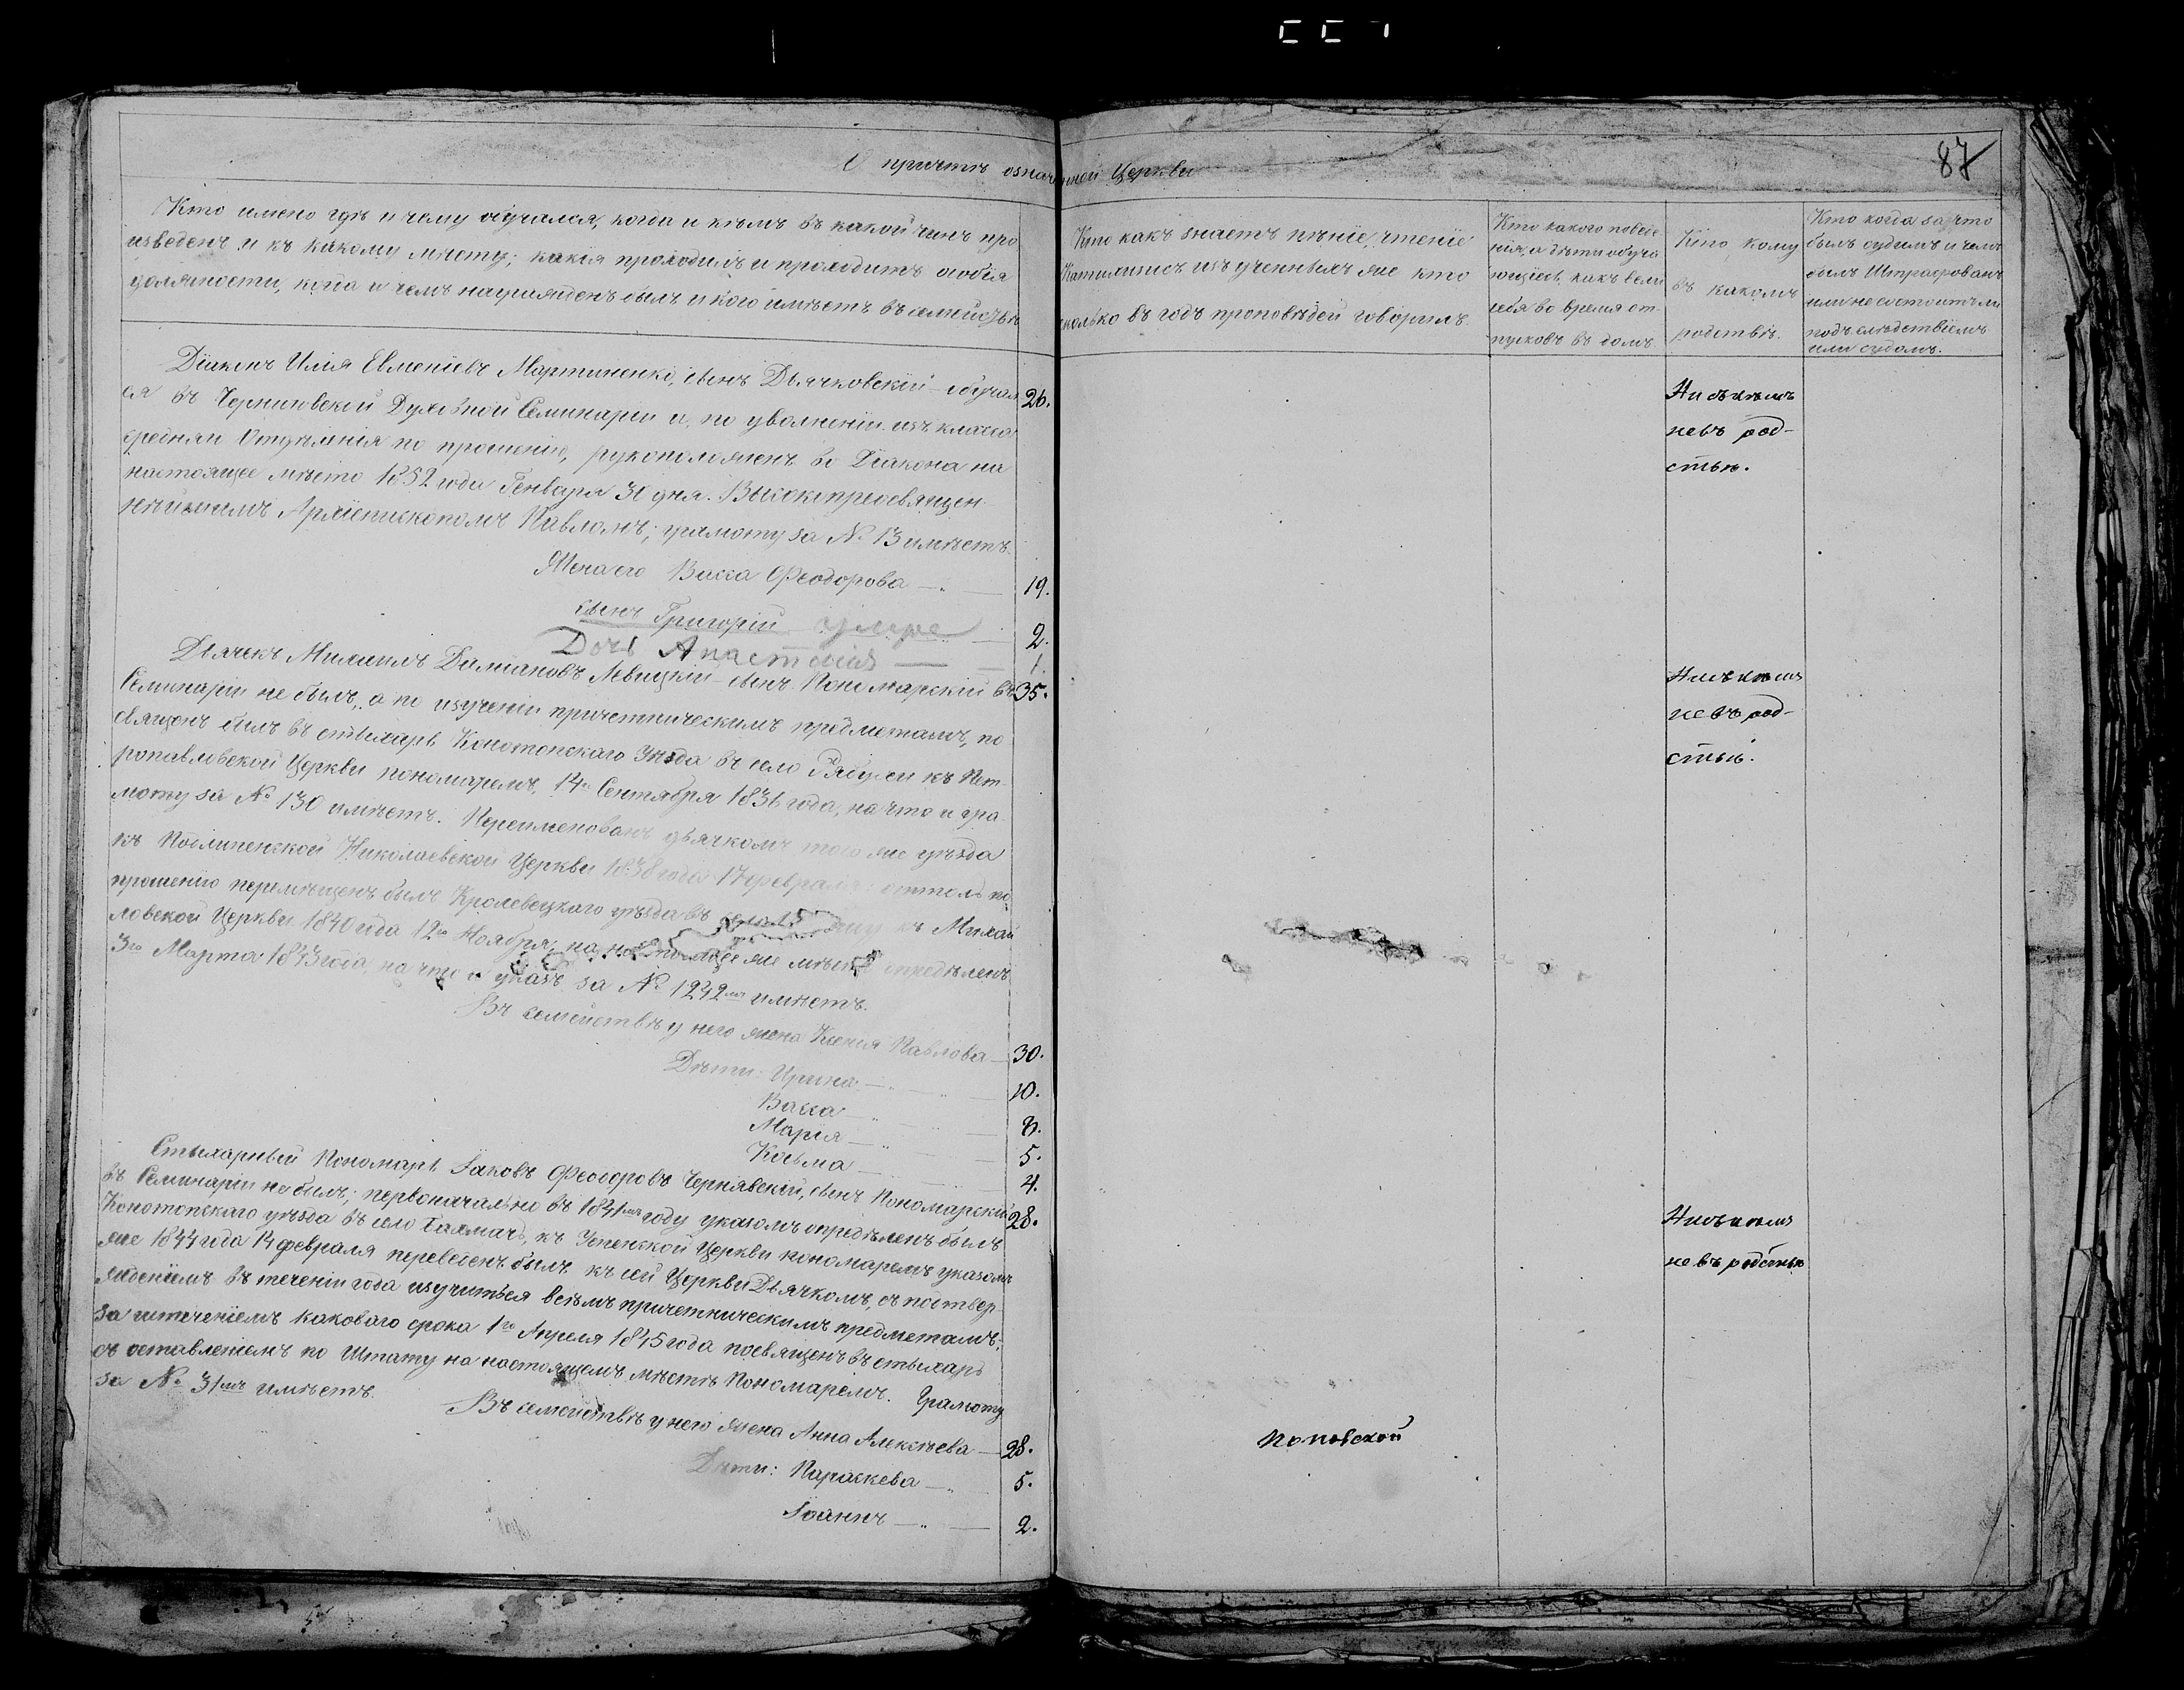 87
О причтѣ означенной Церкви
Кто имено гдѣ и чему обучался, когда и кѣмъ въ какой чинъ про
изведенъ и къ какому мѣсту; какія проходилъ и проходитъ особія
должности, когда и чемъ награжденъ былъ и кого имѣетъ въ семействѣ
Кто какъ знаетъ пѣніе, чтеніе
Катихизисъ изъ ученныхъ же кто
сколько въ годъ проповѣдей говорилъ.
Кто какого поведе
нія, а дѣти обуча
ющіеся, какъ вели
себя во время от
пусковъ въ домъ.
Кто, кому
въ какомъ
родствѣ.
Кто когда за что
былъ судимъ и чемъ
былъ Штрафованъ
или не состоитъ ли
подъ слѣдствіемъ
или судомъ.
Діаконъ Илія Евменіевъ Мартиненко, сынъ Дьячковскій – обучал 26.
ся въ Черниговской Духовной Семинаріи и, по уволненіи изъ класса
средняго Отдѣленія по прошенію, рукоположенъ во Діакона на
настоящее мѣсто 1852 года Генваря 30 дня. Высокопреосвящен
нѣйшимъ Архіепископомъ Павломъ; грамоту за № 13 имѣетъ.
Жена его Васса Феодорова — 19.
сынъ Григорій умре 2.
Дочь Анастасія — 1.
Ни съ кѣмъ
не въ род-
ствѣ.
Дьячекъ Михаилъ Даміановъ Левицкій – сынъ Пономарскій въ 35.
Семинаріи не былъ, а по изученіи причетническимъ предметамъ, по
священъ былъ въ стихарь Конотопскаго Уѣзда въ село Рябухи къ Пет
ропавловской Церкви пономаремъ, 14го Сентября 1831 года, на что и гра
моту за № 130 имѣетъ. Переименованъ дьячкомъ того же уѣзда
къ Подлипенской Николаевской Церкви 1838 года 17 февраля: оттоль по
прошенію перемѣщенъ былъ Кролевецкаго уѣзда въ село къ Михай
ловской Церкви 1840 года 12го Ноября; на настоящее же мѣсто опредѣленъ
3го Марта 1843 года, на что и указъ за № 1242мъ имѣетъ.
Въ семействѣ у него жена Ксенія Павлова — 30.
Дѣти: Ирина — 10.
Васса — 8.
Марія — 5.
Косьма — 4.
Ни съ кѣмъ
не въ род-
ствѣ.
Стихарный Пономарь Іаковъ Феодоровъ Чернявскій, сынъ Пономарскій 28.
въ Семинаріи не былъ; первоначально въ 1841мъ году указомъ опредѣленъ былъ
Конотопскаго уѣзда въ село Тахмачъ, къ Успенской Церкви пономаремъ указомъ
же 1844 года 14 февраля переведенъ былъ къ сей Церкви Дьячкомъ, съ подтвер
жденіемъ въ теченіи года изучиться всѣмъ причетническимъ предметамъ;
за истеченіемъ каковаго срока 1го Апреля 1845 года посвященъ въ стихарь
съ оставленіемъ по Штату на настоящемъ мѣстѣ Пономарёмъ. Грамоту
за № 31мъ имѣетъ.
Въ семействѣ у него жена Анна Алексѣева — 28.
Дѣти: Параскева — 5.
Іоаннъ — 2.
Ни съ кѣмъ
не въ родствѣ
Поповской